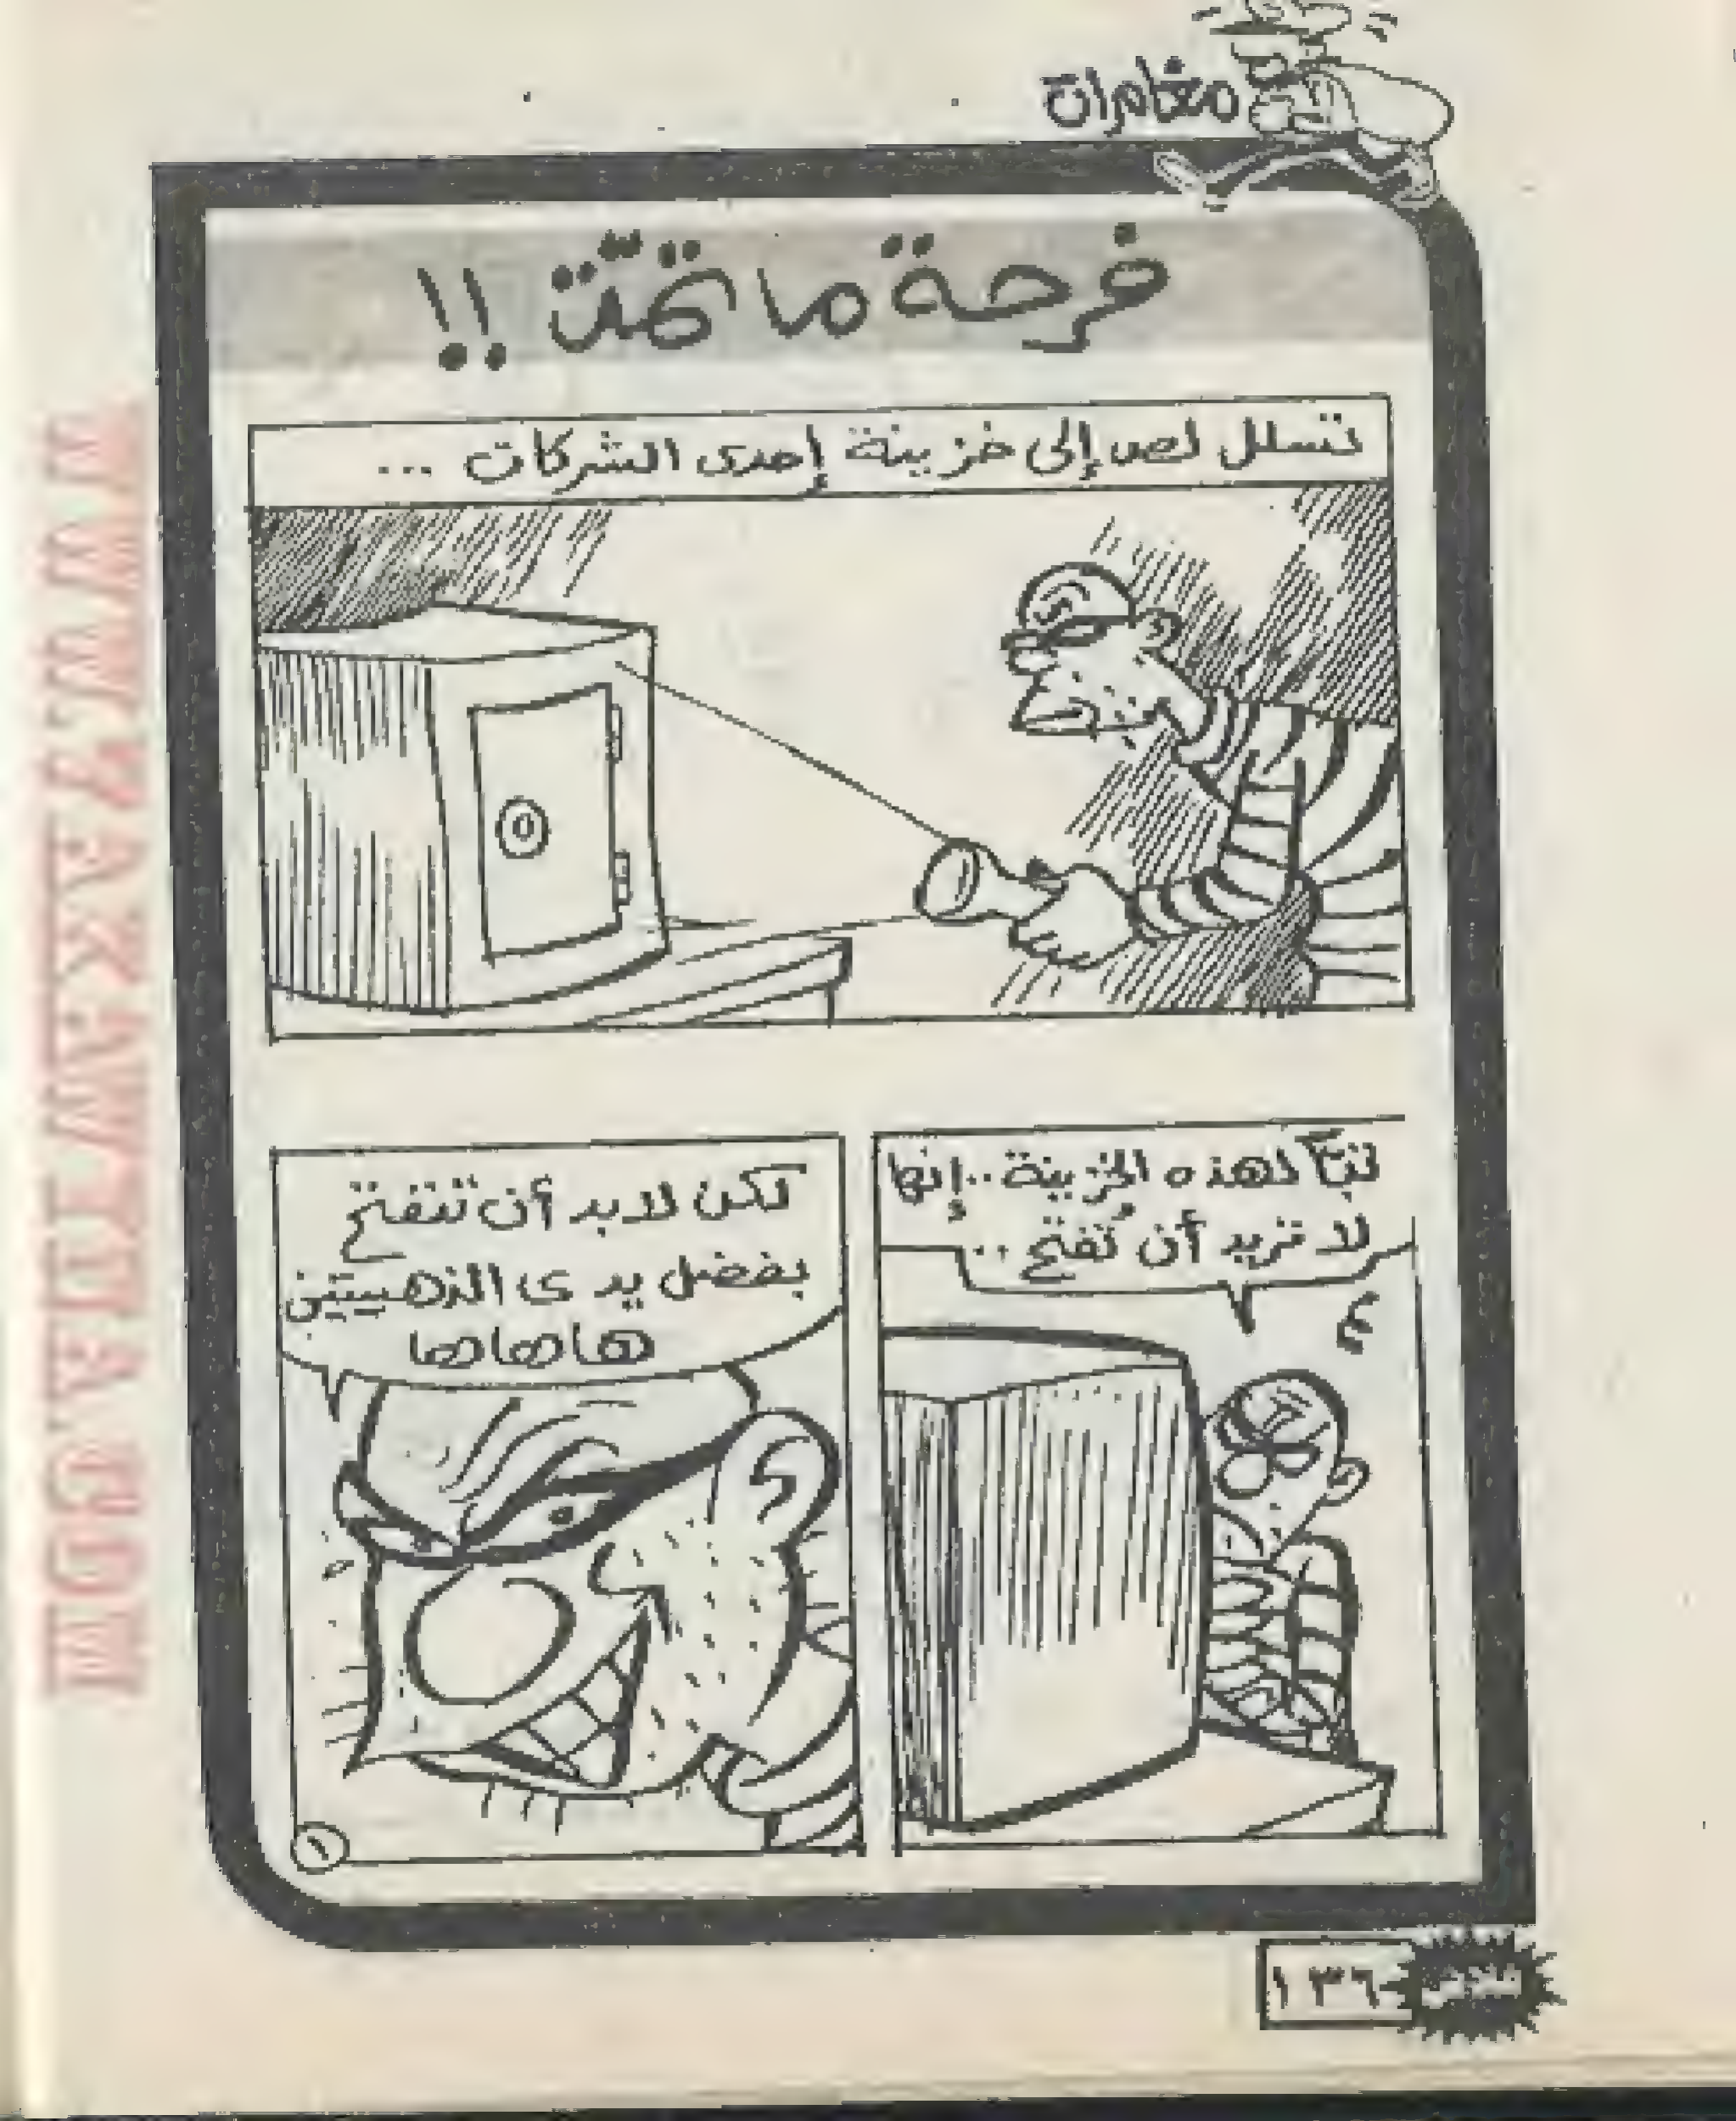 مغامرات
فرحة ما تمّت !!
تسلل لص إلى خزينة إحدى الشركات ...
تبًّا لهذه الخزينة .. إنها
لا تريد أن تُفتح ..
لكن لابد أن تنفتح
بفضل يدى الذهبيتين
هاهاها
١
فلاش
١٣٦
WWW.RAKAWITY.COM